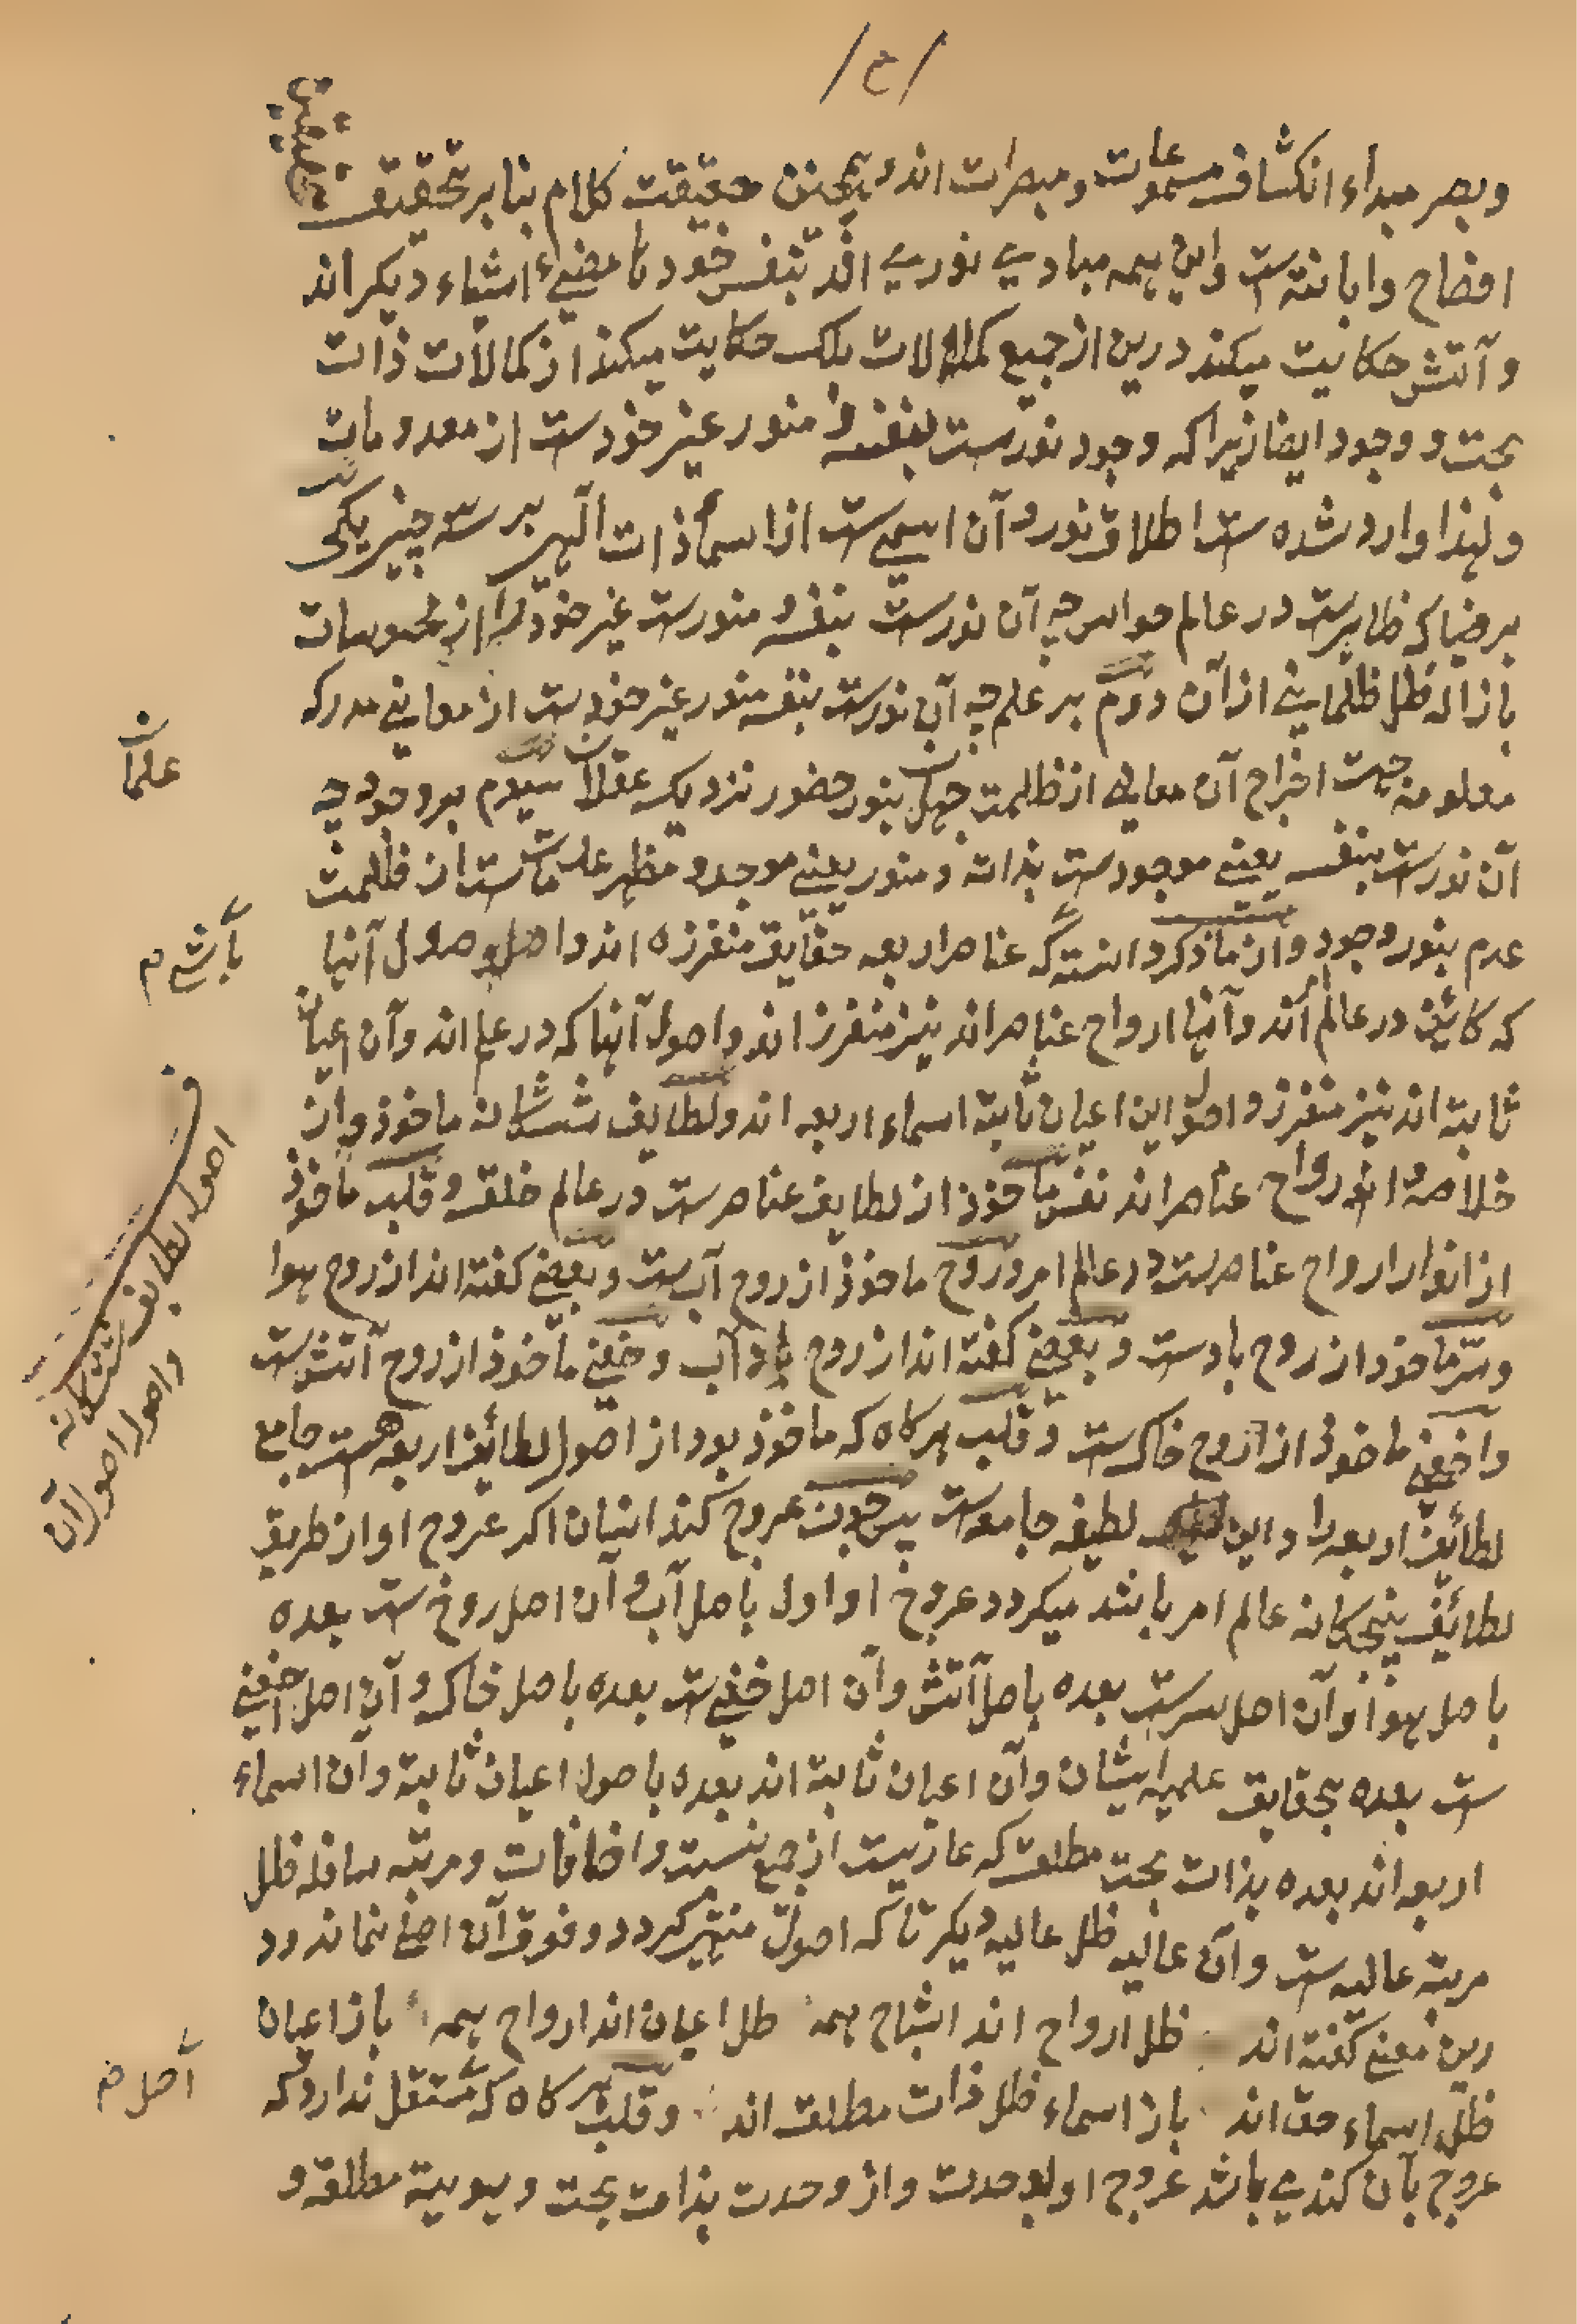 /ح/
وبصر مبداء انکشاف مسموعات ومبصرات اند و همچنین حقیقت کلام بنا بر تحقیق
افضاح وابانته ست واین همه مبادي نوري اند بنفس خود تا مضئ اشیاء دیگر اند
و آتش حکایت میکند درین از جمیع کمالات بلک حکایت میکند از کمالات ذات
بحت و وجود ایضا زیرا که وجود نورست بنفسه و منور غیر خودست از معدومات
ولهذا وارد شده ست اطلاق نور و آن اسمی ست از اسمأ ذات الهی بر سه چیز یکی
بر ضیا که ظاهرست در عالم حواس چه آن نورست بنفسه و منورست غیر خود را از محسوسات
بازاله ظل ظلمانیے از آن دوم بر علم چه آن نورست بنفسه منور غیر خودست از معانی مدرکه
معلومه جهت اخراج آن معانی از ظلمت جهل بنور حضور نزدیک عقلا سیوم بر وجود چه
آن نورست بنفسه یعنی موجودست بذاته و منور یعنے موجد و مظهر ست از ظلمت
عدم بنور وجود و از ما ذکر دانسته که عناصر اربعه حقایق متفرزه اند و اصول آنها
که کاین در عالم اند و آنها ارواح عناصر اند نیز متفرز اند و اصول آنها که در علم اند و آن اعیان
ثابته اند نیز متفرز و اصول این اعیان ثابته اسماء اربعه اند و لطایف ششگانه ماخوذ از
خلاصه و انوار ارواح عناصر اند نفس ماخوذ از لطایف عناصرست در عالم خلق و قلب ماخوذ
از انوار ارواح عناصرست در عالم امر و روح ماخوذ از روح آب ست و بعضے گفته اند از روح هوا
و سر ماخوذ از روح بادست و بعضے گفته اند از روح آب و خفی ماخوذ از روح آتش ست
و اخفی ماخوذ از روح خاک ست و قلب هرگاه که ماخوذ بود از اصول لطائف اربعه هست جامع
لطائف اربعه را و این لطیفه جامع ست پس چون عروج کند انسان اگر عروج او از طریق
لطائف پنجگانه عالم امر باشد میگردد عروج او اول باصل آب و آن اصل روح ست بعده
باصل هوا و آن اصل سرست بعده باصل آتش و آن اصل خفی ست بعده باصل خاک و آن اصل اخفی
ست بعده بحقایق علمیه ایشان و آن اعیان ثابته اند بعده باصول اعیان ثابته و آن اسماء
اربعه اند بعده بذات بحت مطلق که عاریست از جمیع نسبت و اضافات و مرتبه سافله ظل
مرتبه عالیه ست و آن عالیه ظل عالیه دیگر تا که اصول منتهی گردد و فوق آن اصلے نماند و د
رین معنے گفته اند ظل ارواح اند اشباح همه ظل اعیان اند ارواح همه باز اعیان
ظل اسماء حق اند باز اسماء ظل ذات مطلق اند و قلب هرگاه که مستقل ندارد که
عروج بآن کند می باشد عروج او بوحدت و از وحدت بذات بحت و هویة مطلقه و
اصول لطایف ششگانه
و اصول اصول آن
اصل م